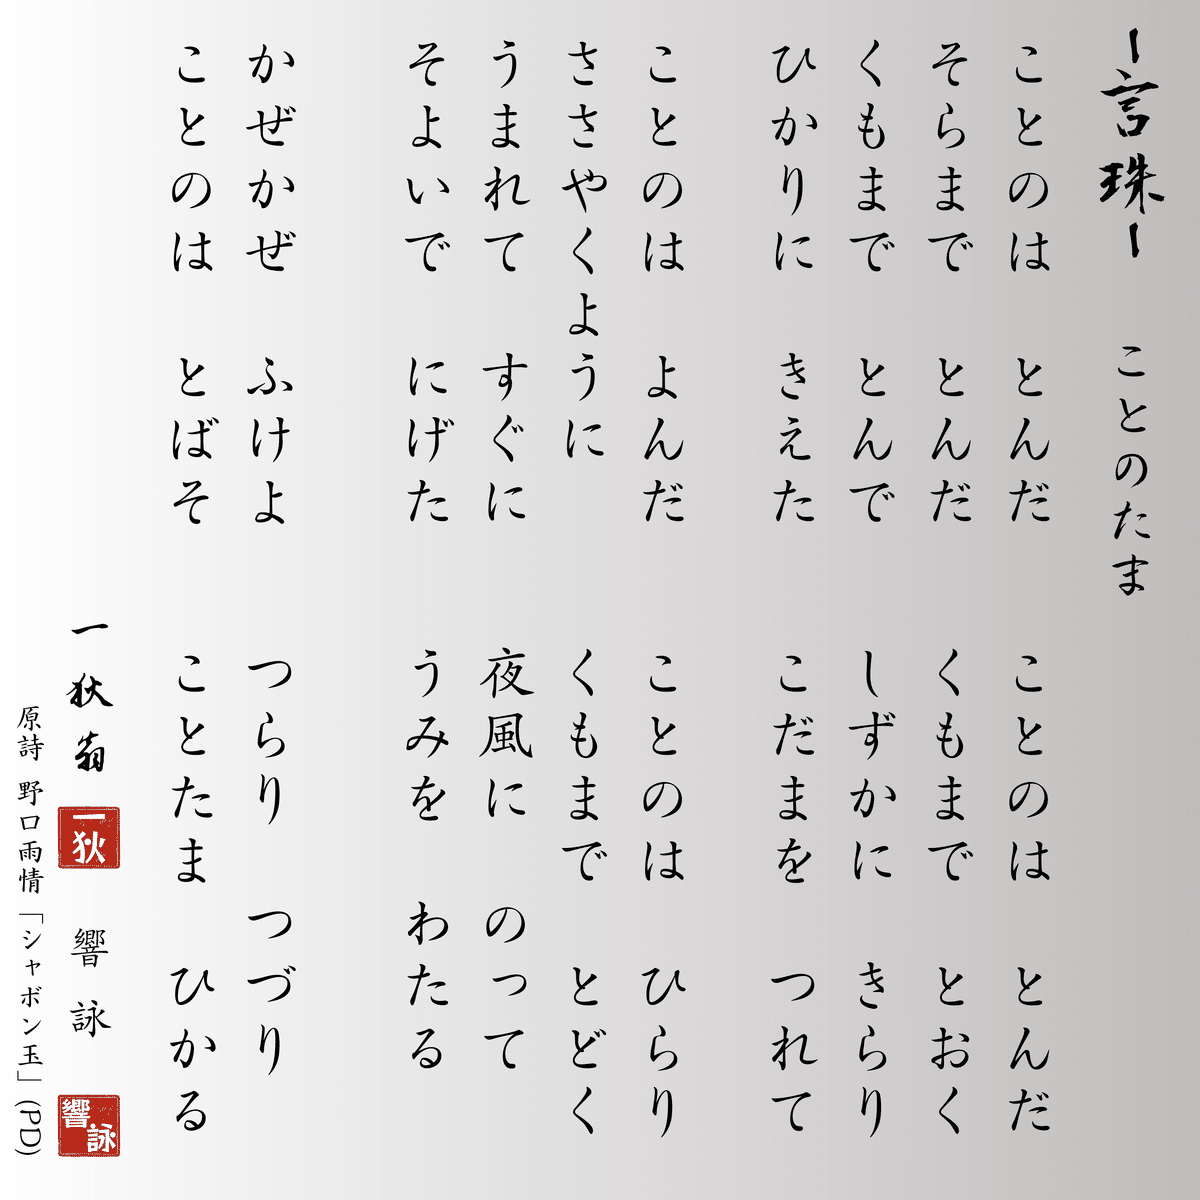 -言珠- ことのたま
ことのは とんだ ことのは とんだ
そらまで とんだ くもまで とおく
くもまで とんで しずかに きらり
ひかりに きえた こだまを つれて
ことのは よんだ ことのは ひらり
ささやくように くもまで とどく
うまれて すぐに 夜風に のって
そよいで にげた うみを わたる
かぜかぜ ふけよ つらり つづり
ことのは とばそ ことたま ひかる
一狄翁 一狄 響詠 響詠
原詩 野口雨情「シャボン玉」(PD)